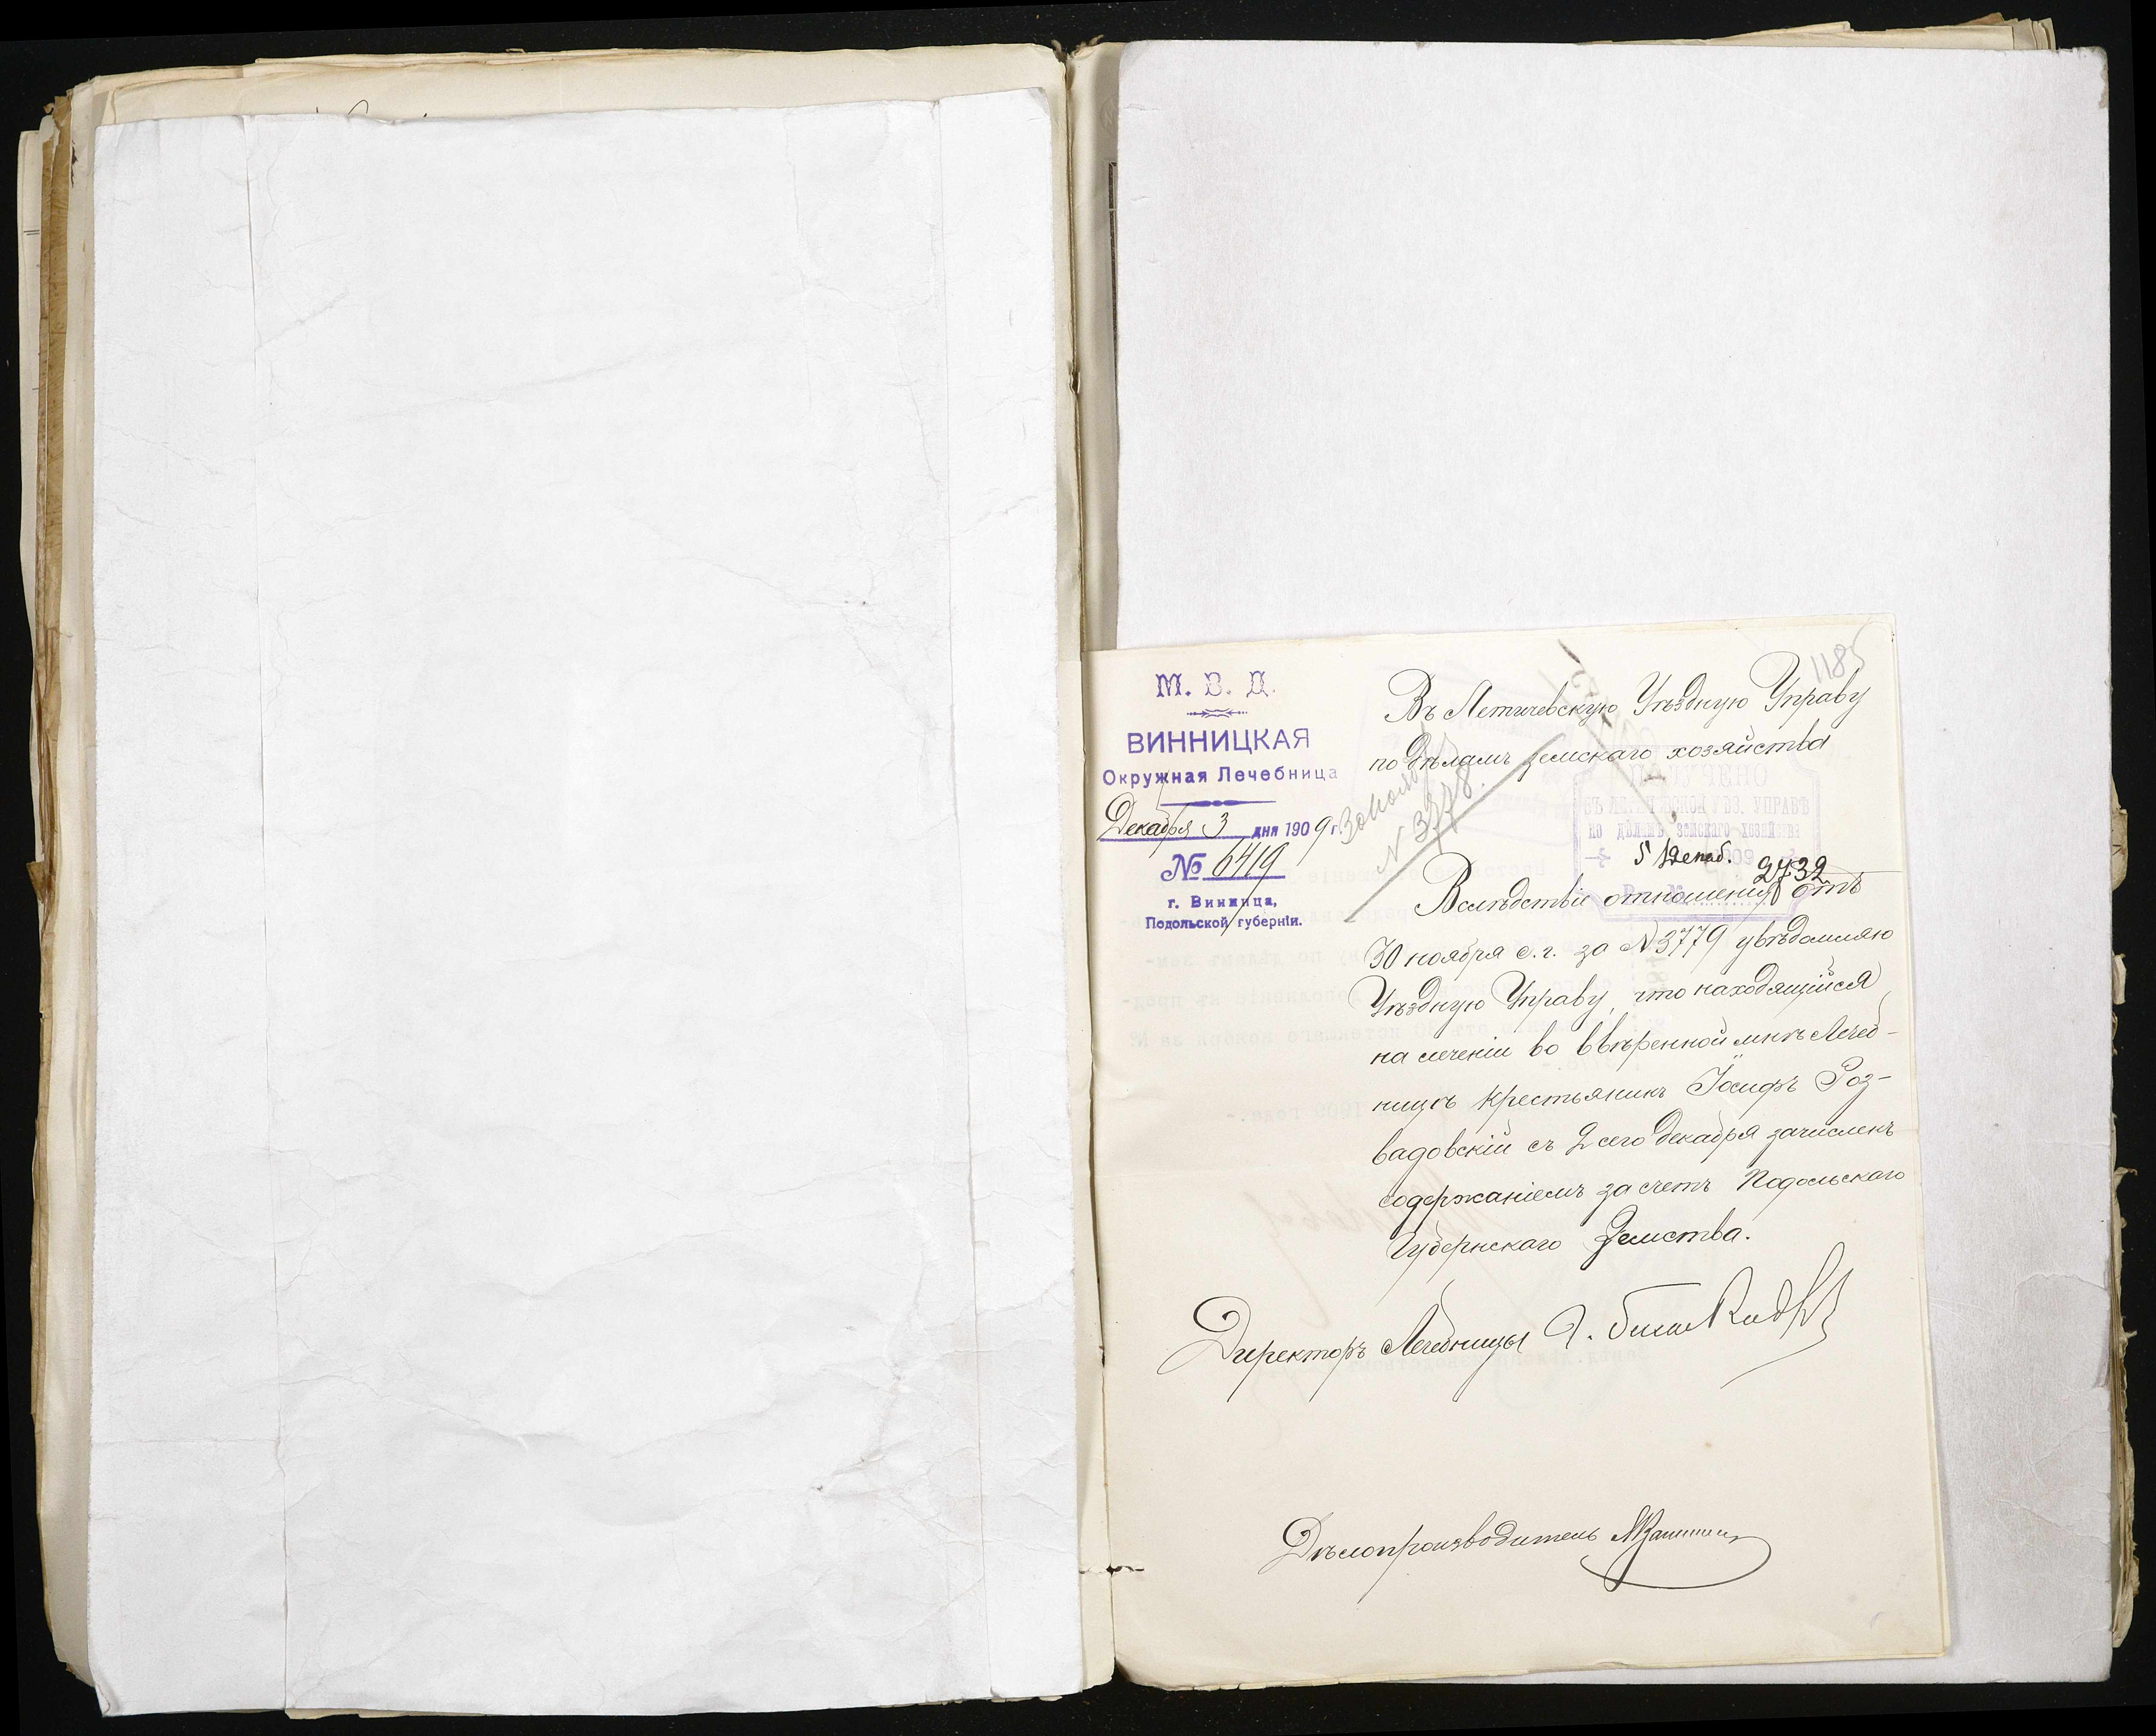 1185
М. В. Д.
ВИННИЦКАЯ
Окружная Лечебница
Декабря 3 дня 1909 г.
№ 6419
г. Винница,
Подольской губерніи.
Въ Летичевскую Уѣздную Управу
по дѣламъ земскаго хозяйства
N 3778.
ПОЛУЧЕНО
ВЪ ЛЕТИЧЕВСКОЙ УѢЗ. УПРАВѢ
по дѣламъ земскаго хозяйства
5 Декаб. 1909
2732
Вслѣдствіе отношенія отъ
30 ноября с.г. за N 3779 увѣдомляю
Уѣздную Управу, что находящійся
на леченіи во ввѣренной мнѣ Лечеб-
ницѣ крестьянинъ Іосифъ Роз-
вадовскій съ 2 сего декабря зачисленъ
содержаніемъ за счетъ Подольскаго
Губернскаго Земства.
Директоръ Лечебницы
Дѣлопроизводитель